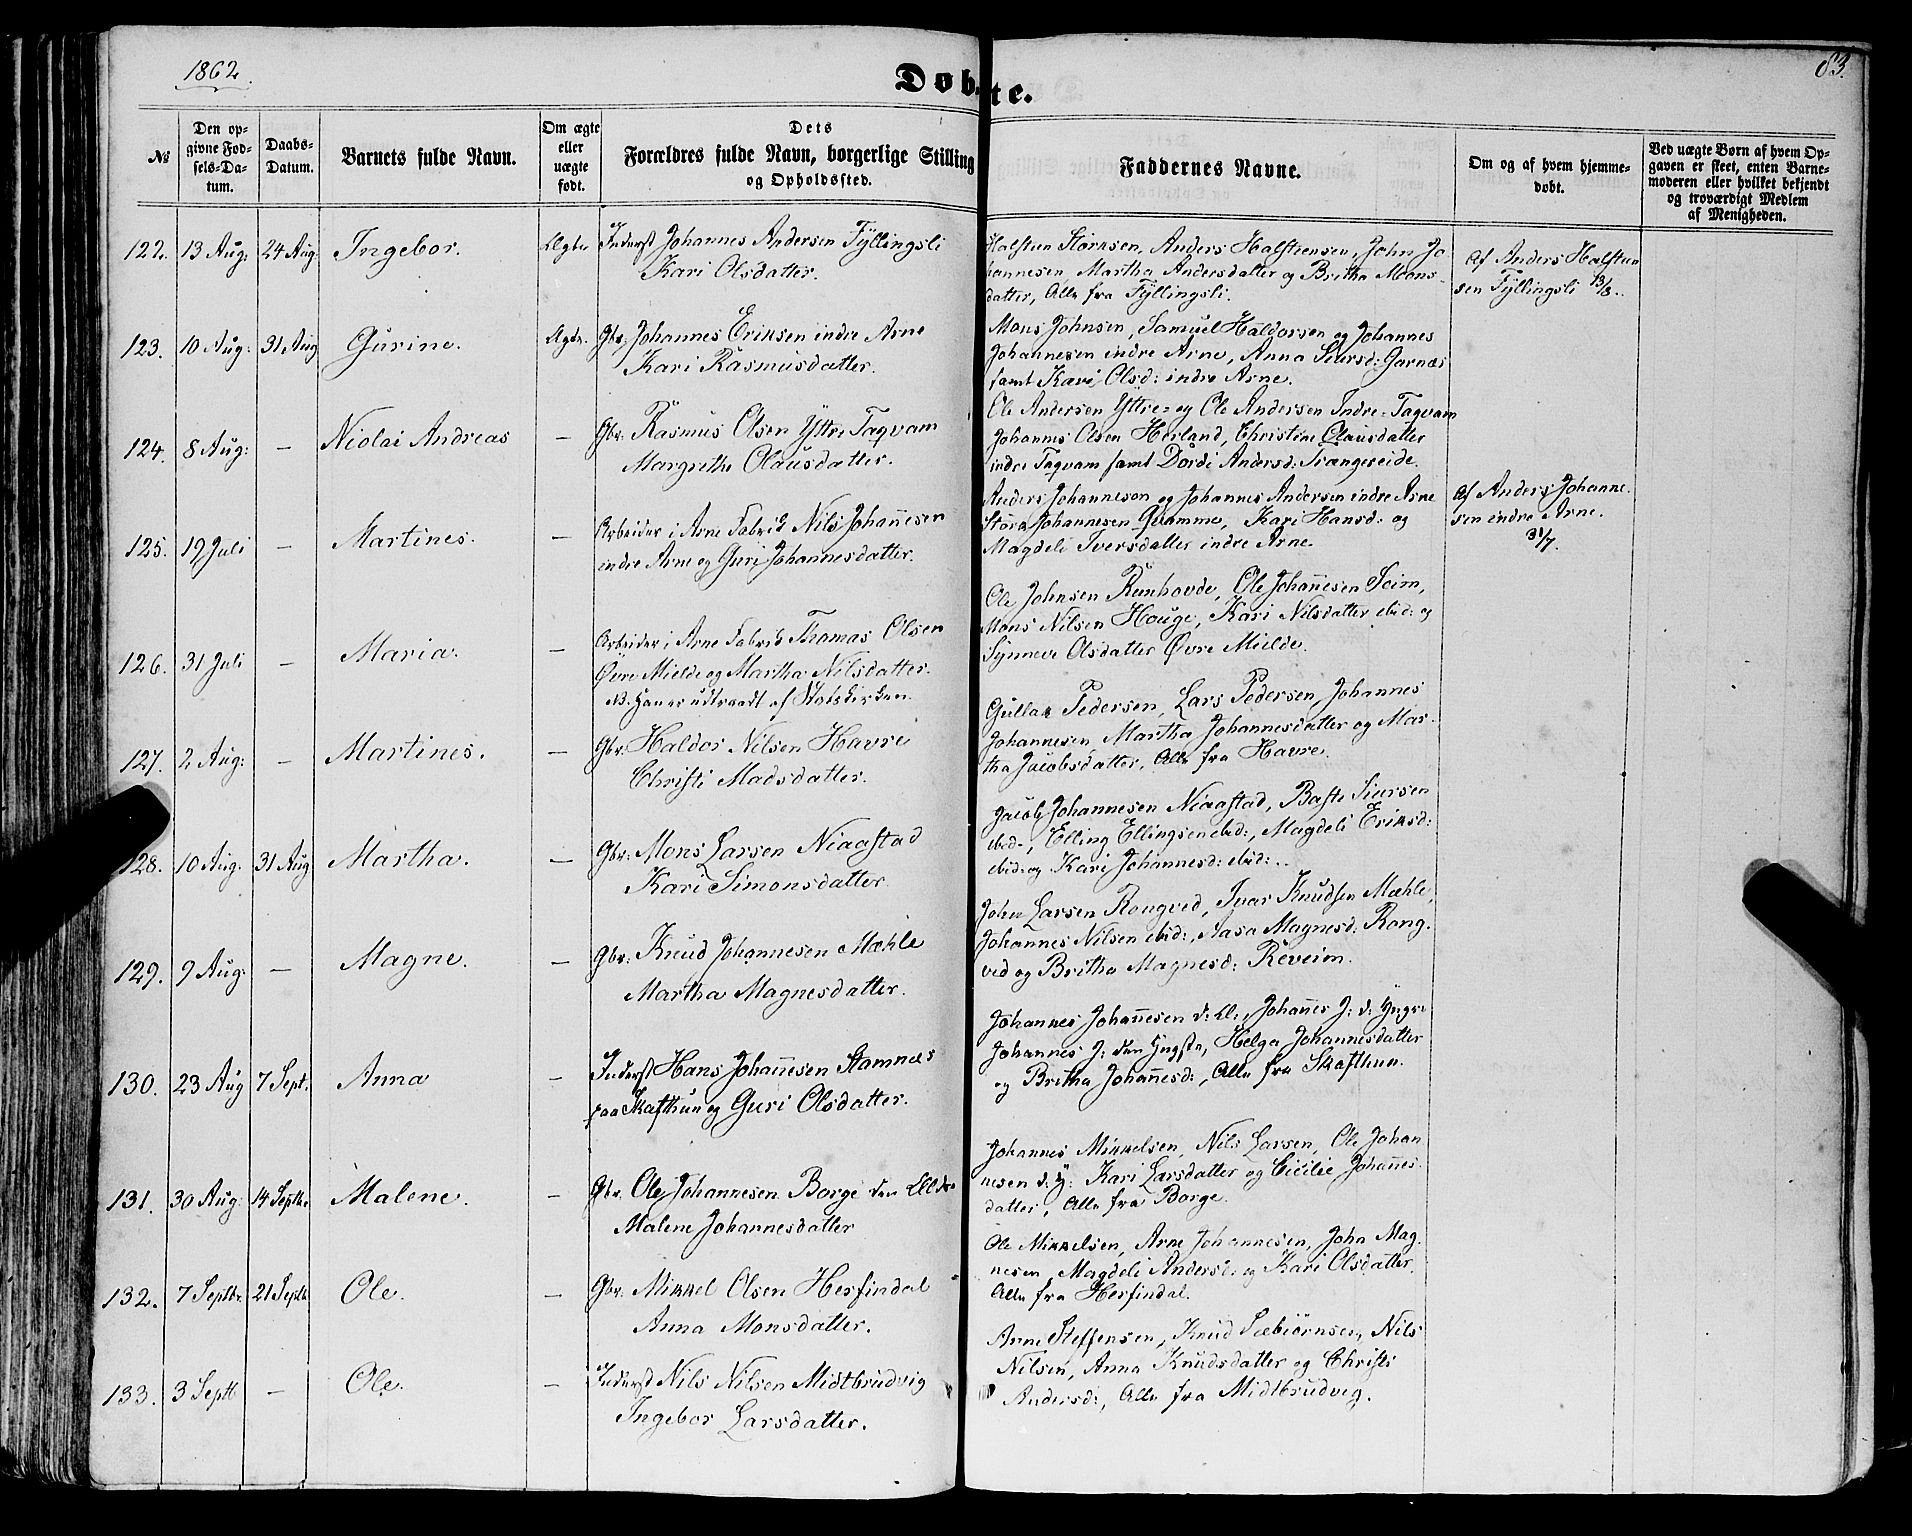 1862.
83.
Døbte.
№
Den op-
givne Fød-
sels-Da-
tum.
Daabs-
Datum.
Barnets fulde Navn.
Om ægte
eller
uægte
født.
Dets
Forældres fulde Navn, borgerlige Stilling
og Opholdssted.
Faddernes Navne.
Om og af hvem hjemme-
døbt.
Ved uægte Børn af hvem Op-
gaven er skeet, enten Barne-
moderen eller hvilket bekjendt
og troværdigt Medlem
af Menigheden.
122. 13 Aug: 24 Aug: Ingebor. Ægte Inderst Johannes Andersen Fyllingsli
Kari Olsdatter.
Halsteen Størksen, Anders Halsteensen, John Jo
hannesen, Martha Andersdatter og Britha Mons-
datter, Alle fra Fyllingsli.
Af Anders Halsten
sen Fyllingsli 13/8.
123. 10 Aug: 31 Aug Gurine. Ægte. Gbr: Johannes Eriksen indre Arne
Kari Rasmusdatter.
Mons Johnsen, Samuel Haldorsen og Johannes
Johannesen indre Arne, Anna Siursd: Garnæs
samt Kari Olsd: indre Arne.
124. 8 Aug: – Niolai Andreas – Gbr: Rasmus Olsen Yttre Taqvam
Margrethe Olausdatter.
Ole Andersen Yttre- og Ole Andersen Indre-Taqvam
Johannes Olsen Herland, Christine Olausdatter
indre Taqvam samt Dordi Andersd: Trængereide.
125. 19 Juli – Martines. – Arbeider i Arne Fabrik Nils Johannesen
indre Arne og Guri Johannesdatter.
Anders Johannesen og Johannes Andersen indre Arne
Johannesen Qvamme, Kari Hansd: og
Magdeli Iversdatter indre Arne.
Af Anders Johanne-
sen indre Arne.
31/7.
126. 31 Juli – Maria. – Arbeider i Arne Fabrik Thomas Olsen
Øvre Mielde og Martha Nilsdatter.
NB. Han er udtraadt af Statskirken.
Ole Johnsen Runhovde, Ole Johannesen Seim,
Mons Nilsen Houge, Kari Nilsdatter ibid: og
Synneve Olsdatter Øvre Mielde.
127. 2 Aug: – Martines. – Gbr: Haldor Nilsen Havre
Christi Madsdatter.
Gullak Pedersen, Lars Pedersen, Johannes
Johannesen, Martha Johannesdatter og Mar-
tha Jacobsdatter, Alle fra Havre.
128. 10 Aug: 31 Aug Martha. – Gbr: Mons Larsen Niaastad
Kari Simonsdatter.
Jacob Johannesen Niaastad, Baste Siursen
ibid:, Elling Ellingsen ibid:, Magdeli Eriksd:
ibid: og Kari Johannesd: ibid:.
129. 9 Aug: – Magne. – Gbr: Knud Johannesen Mæhle
Martha Magnesdatter.
John Larsen Rongved, Ivar Knudsen Mæhle,
Johannes Nilsen ibid:, Aasa Magnesd: Rong-
ved og Britha Magnesd: Reveim.
130. 23 Aug 7 Sept. Anna – Inderst Hans Johannesen Stamnes
paa Skafthun og Guri Olsdatter.
Johannes Johannesen d: Æl:, Johannes J: d: Yngre
Johannes J: den Yngste, Helga Johannesdatter
og Britha Johannesd:, Alle fra Skafthun.
131. 30 Aug: 14 Septbr Malene. – Gbr. Ole Johannesen Borge den Ældre
Malene Johannesdatter
Johannes Mikkelsen, Nils Larsen, Ole Johan
nesen d: y: Kari Larsdatter og Cicilie Johannes-
datter, Alle fra Borge.
132. 7 Septbr. 21 Septb Ole. – Gbr. Mikkel Olsen Herfindal
Anna Monsdatter.
Ole Mikkelsen, Arne Johannesen, John Mag-
nesen, Magdeli Andersd: og Kari Olsdatter.
Alle fra Herfindal.
133. 3 Septb – Ole. – Inderst Nils Nilsen Midtbrudvig
Ingebor Larsdatter.
Arne Steffensen, Knud Sæbiørnsen, Nils
Nilsen, Anna Knudsdatter og Christi
Andersd:, Alle fra Midtbrudvig.